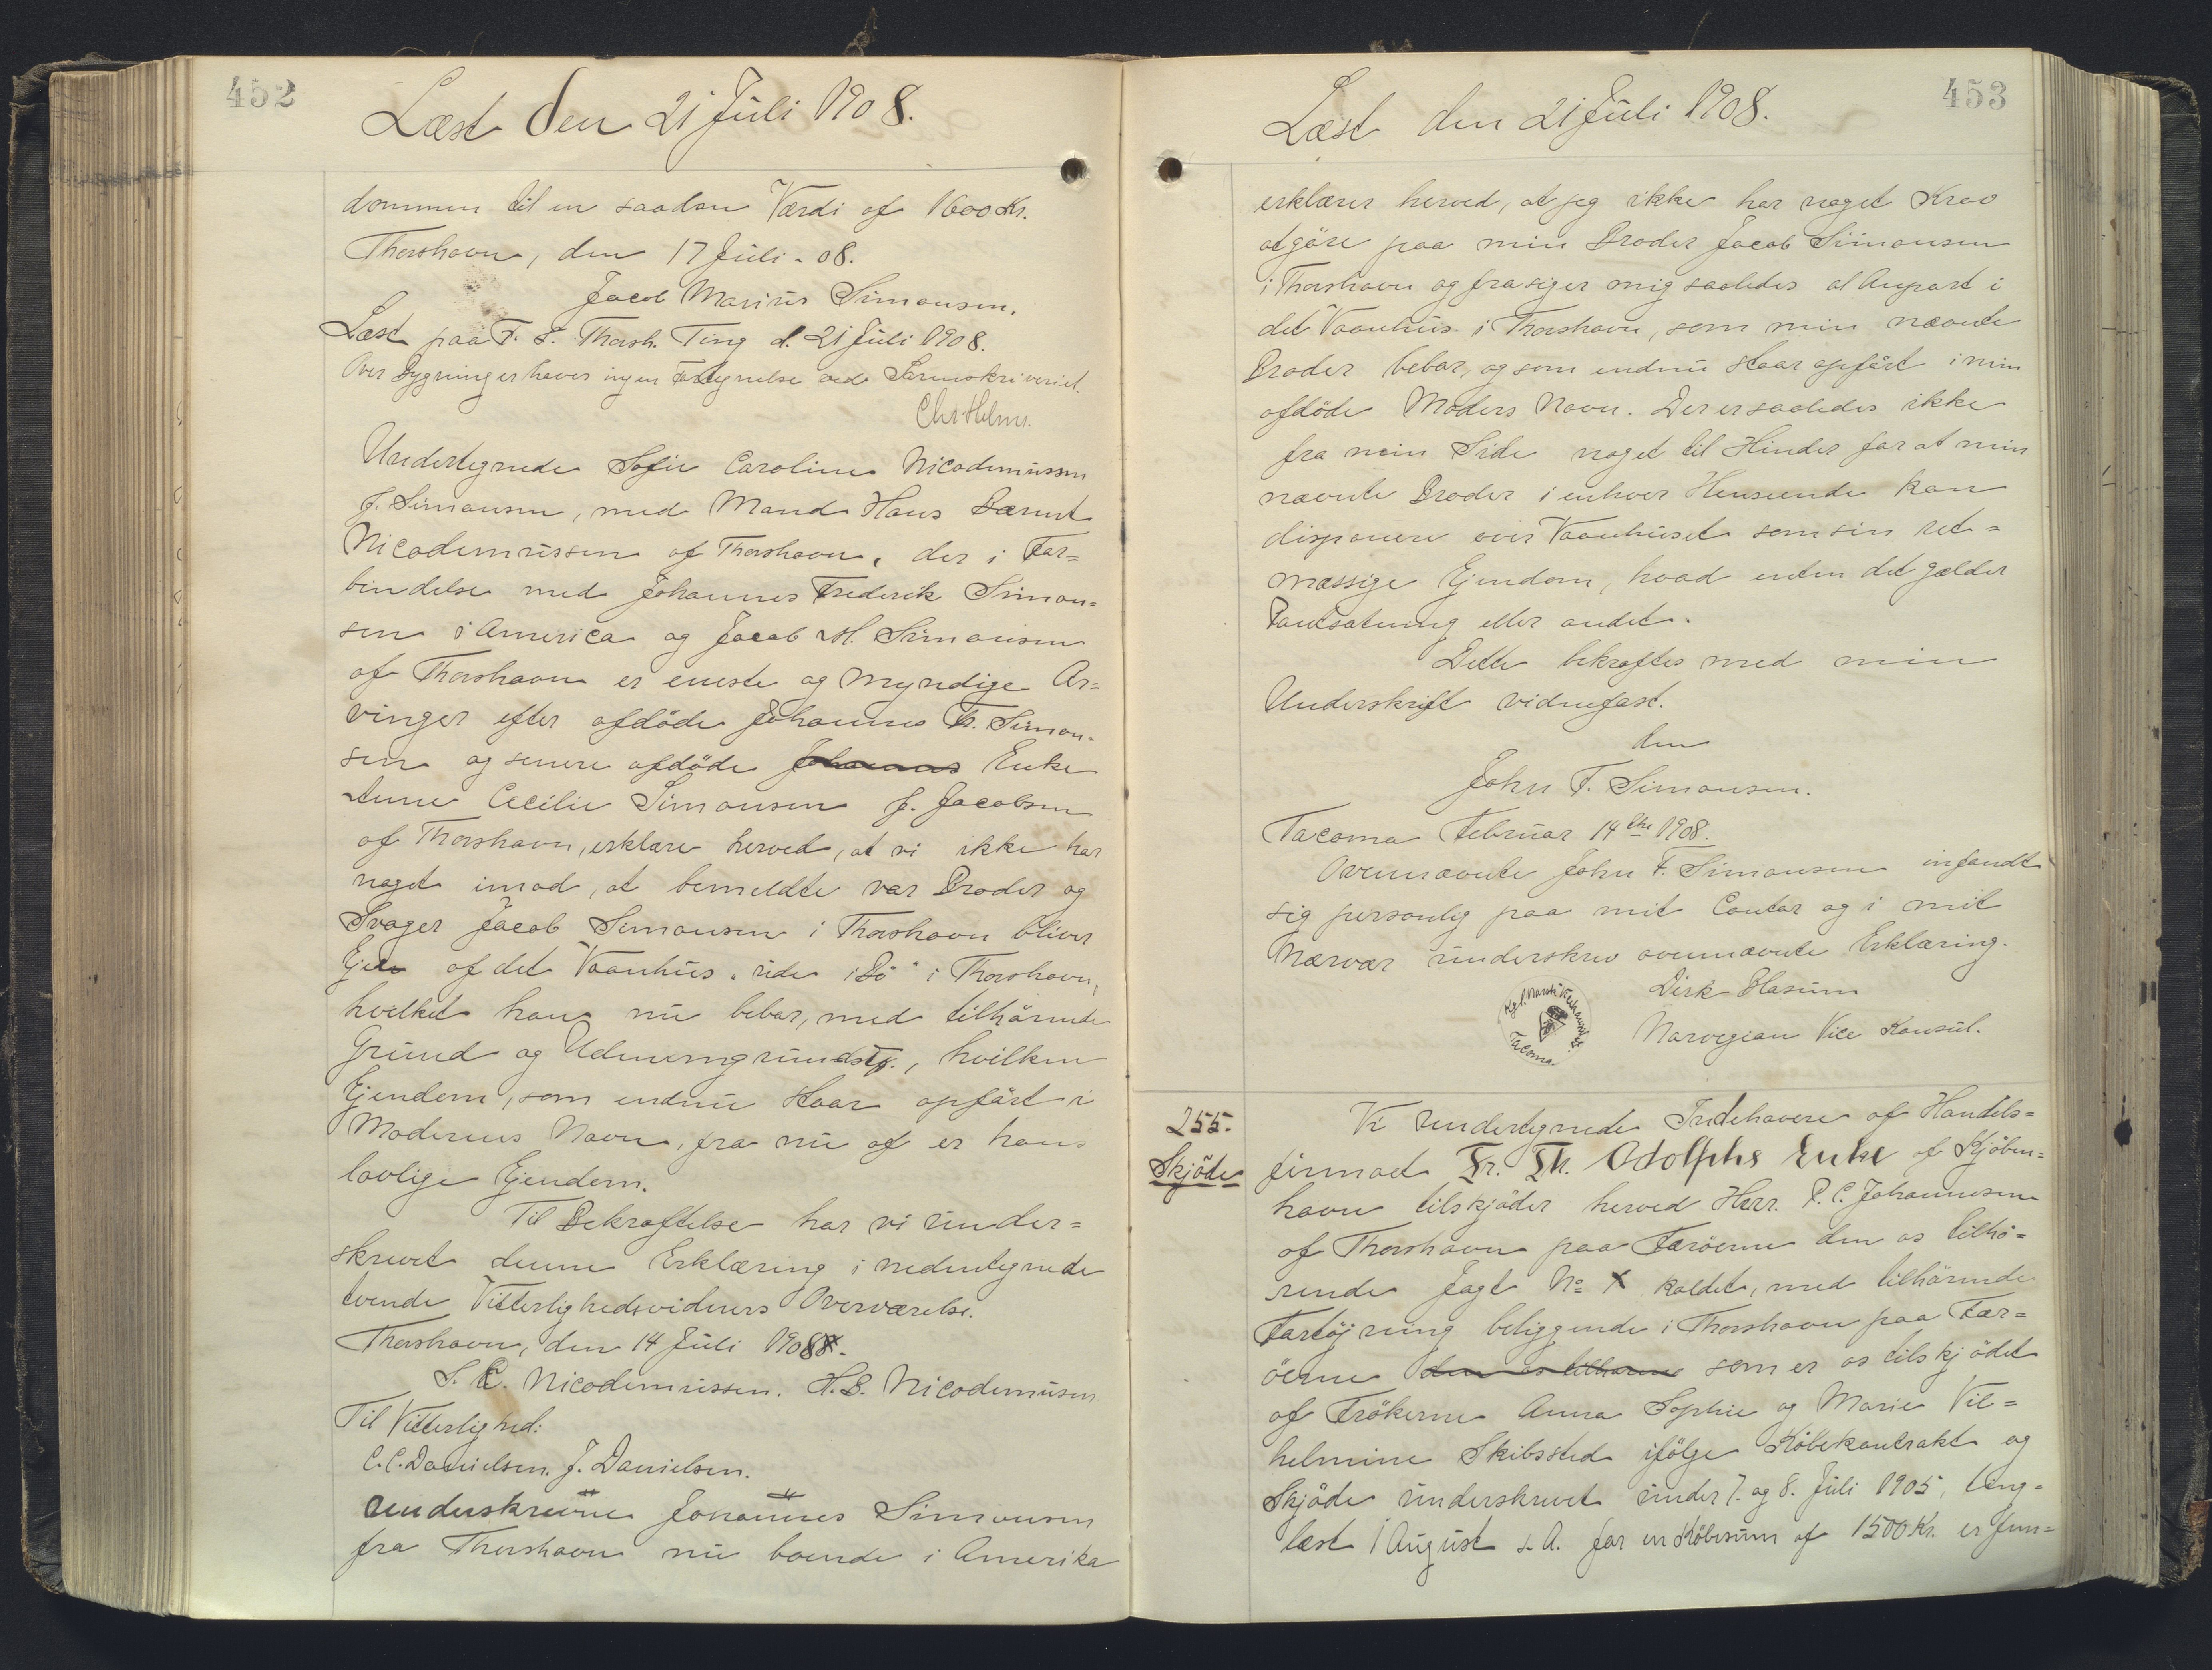 452
Læst den 21 Juli 1908.
dommen til en saadan Værdi af 1600 Kr.
Thorshavn, den 17 Juli - 08.
Jacob Marius Simonsen.
Læst paa F. S. Thorsh. Ting d. 21 Juli 1908.
Over Bygninger haves ingen Fortegnelse ved Sorenskriveriet.
Chr Helms.
Undertegnede Sofie Caroline Nicodemussen
f. Simonsen, med Mand Hans Bærent
Nicodemussen af Thorshavn, der i For=
bindelse med Johannes Frederik Simon=
sen i America og Jacob M. Simonsen
af Thorshavn er eneste og myndige Ar=
vinger efter afdöde Johannes Fr. Simon=
sen og senere afdöde Johannes Enke
Anne Cecilie Simonsen f. Jacobsen
af Thorshavn, erklære herved, at vi ikke har
noget imod, at bemeldte vor Broder og
Svoger Jacob Simonsen i Thorshavn bliver
Ejer af det Vaanhus "ude i Bö" i Thorshavn,
hvilket han nu bebor, med tilhörende
Grund og Udenomgrundstk., hvilken
Ejendom, som endnu staar opfört i
Moderens Navn, fra nu af er hans
lovlige Ejendom.
Til Bekræftelse har vi under=
skrevet denne Erklæring i nedentegnede
tvende Vitterlighedsvidners Overværelse.
Thorshavn, den 14 Juli 1908.
S. C. Nicodemussen. H. B. Nicodemusen
Til Vitterlighed:
C. C. Danielsen. J. Danielsen.
Underskrevne Johannes Simonsen
fra Thorshavn nu boende i Amerika
453
Læst den 21 Juli 1908.
erklærer herved, at jeg ikke har noget Krav
at göre paa min Broder Jacob Simonsen
i Thorshavn og frasiger mig saaledes al Anpart i
det Vaanhus i Thorshavn, som min nævnte
Broder bebor, og som endnu staar opfört i min
afdöde Moders Navn. Der er saaledes ikke
fra min Side noget til Hinder for at min
nævnte Broder i enhver Henseende kan
disponere over Vaanhuset som sin ret=
mæssige Ejendom, hvad enten det gælder
Pantsætning eller andet.
Dette bekræftes med min
Underskrift vidnefast.
den
John F. Simonsen.
Tacoma Februar 14 the 1908.
Ovennævnte John F. Simonsen infandt
sig personlig paa mit Contor og i mit
Nærvær underskrev ovennævnte Erklæring.
Dirk Blaauw
Norwegian Vice Konsul.
Kgl. Norsk Vicekonsulat.
Tacoma
255.
Skjöde
Vi undertegnede Indehavere af Handels=
firmaet Fr. Th. Adolphs Enke af Kjöben=
havn tilskjöder herved Herr. P. C. Johannesen
af Thorshavn paa Færöerne den os tilhö=
rende Jagt No X kaldet, med tilhörende
Fartöjring beliggende i Thorshavn paa Fær=
öerne den os tilhörende som er os tilskjödet
af Frökerne Anna Sophie og Marie Vil=
helmine Skibssted ifölge Köbekontrakt og
Skjöde underskrevet under 7. og 8. Juli 1905, ting=
læst 1 August s. A. for en Köbesum af 1500 Kr. er fun=